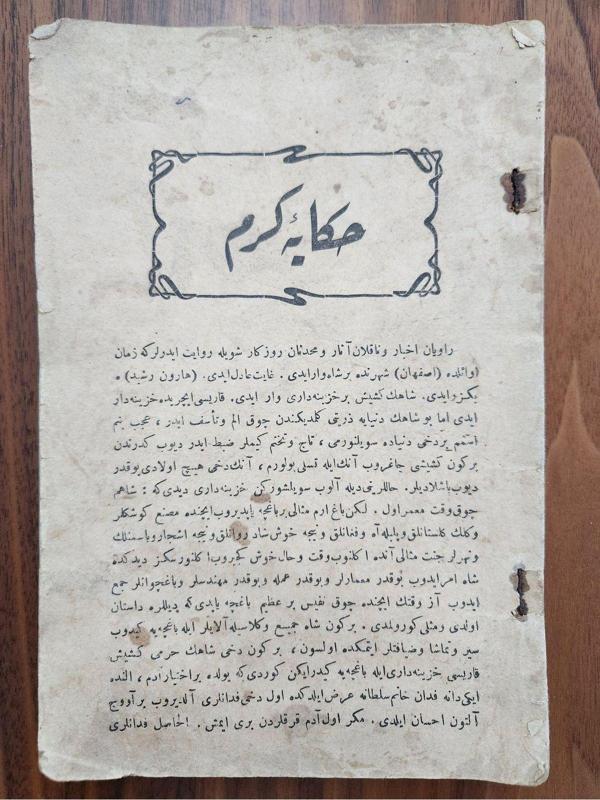 حكايهٔ كرم
راويان اخبار و ناقلان آثار و محدثان روزكار شويله روايت ايدرلركه زمان
اوائلده (اصفهان) شهرنده برشاه وارايدى. غايت عادل ايدى. (هارون رشيد) ه
بكزر ايدى. شاهك كشيش برخزينه‌دارى وار ايدى. قاريسى ايچريده خزينه‌دار
ايدى اما بو شاهك دنيايه ذريتى كلمديكندن چوق الم و تأسف ايدر، عجب بنم
اسمم بردخى دنياده سويلنورمى، تاج و تختم كيملر ضبط ايدر ديوب كدرندن
بركون كشيشى چاغروب آنك ايله تسلى بولورم، آنك دخى هيچ اولادى يوقدر
ديوب باشلاديلر. حاللرينى ديله آلوب سويلشوركن خزينه‌دارى ديدى كه: شاهم
چوق وقت معمر اول. لكن باغ ارم مثالى برباغچه ياپديروب ايچنده مصنع كوشكلر
وكلك كلستانلق و بلبله آه و فغانلق و نيچه خوش شادروانلق و نيچه اشجار و ياسمنلك
ونهرلر جنت مثالى آنده اكلنوب وقت و حال خوش كچيروب اكلنورسكز ديدكده
شاه امرايدوب بوقدر معمارلر و بوقدر عمله و بوقدر مهندسلر و باغچوانلر جمع
ايدوب آز وقتك ايچنده چوق نفيس بر عظيم باغچه ياپدى كه ديللره داستان
اولدى ومثلى كورولمدى. بركون شاه جميع وكلاسيله آلايلر ايله باغچه‌يه كيدوب
سير وتماشا وضيافتلر ايتمكده اولسون، بركون دخى شاهك حرمى كشيش
قاريسى خزينه‌دارى ايله باغچه‌يه كيدرايكن كوردى كه يولده براختيار آدم، النده
ايكى دانه فدان خانم سلطانه عرض ايلدكده اول دخى فدانلرى آلديروب برآووج
آلتون احسان ايلدى. مكر اول آدم قرقلردن برى ايمش. الحاصل فدانلرى